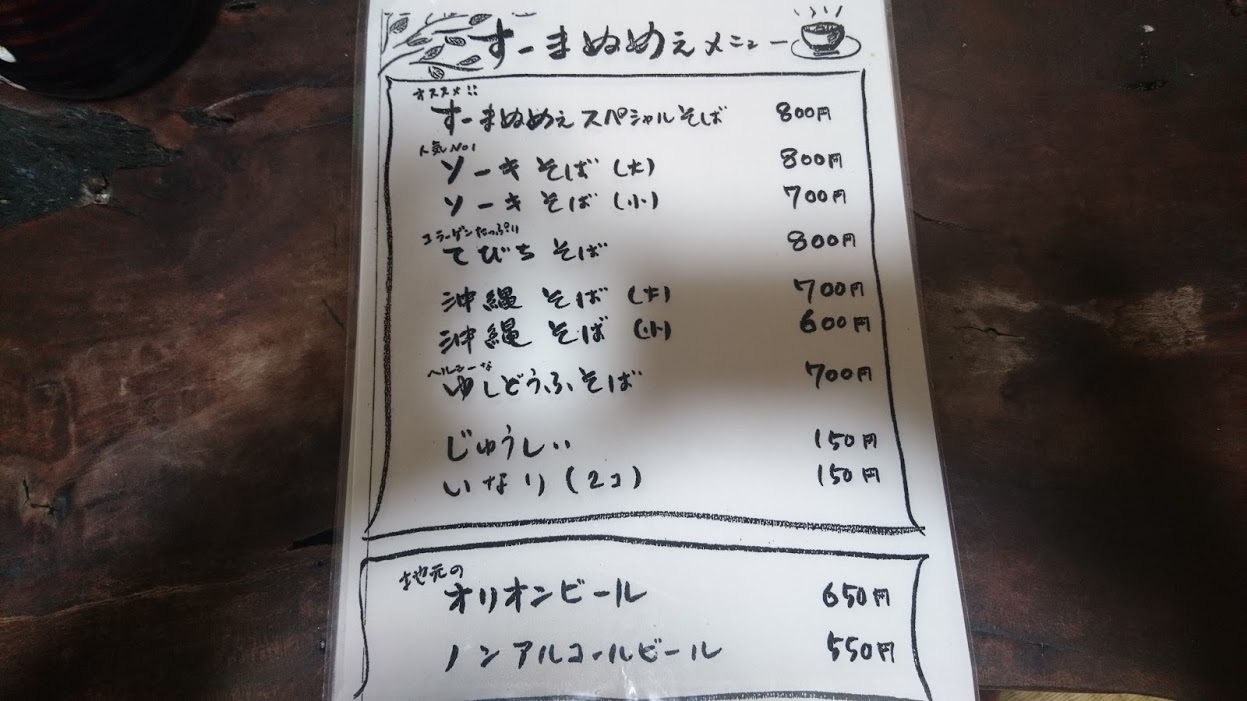 すーまぬめぇメニュー
オススメ!!
すーまぬめぇスペシャルそば 800円
人気No1
ソーキそば(大) 800円
ソーキそば(小) 700円
コラーゲンたっぷり
てびちそば 800円
沖縄そば(大) 700円
沖縄そば(小) 600円
ヘルシーな
ゆしどうふそば 700円
じゅうしぃ 150円
いなり(2コ) 150円
地元の
オリオンビール 650円
ノンアルコールビール 550円